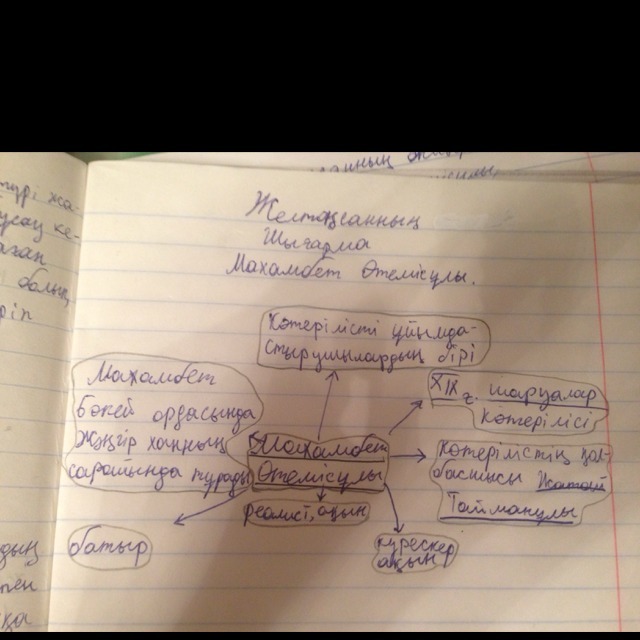 Желтоқсанның
Шығарма
Махамбет Өтемісұлы.
Көтерілісті ұйымда-
стырушылардың бірі
Махамбет
Бөкей ордасында
Жәңгір ханның
сарайында тұрады
XIX ғ. шаруалар
көтерілісі
Махамбет
Өтемісұлы
көтерілістің қол-
басшысы Жатай
Тайманұлы
реалист, ақын
батыр
күрескер
ақын